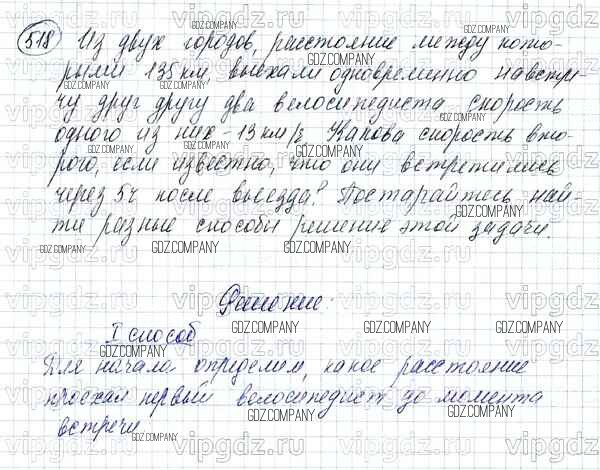 518 Из двух городов, расстояние между кото-
рыми 135 км, выехали одновременно навстре-
чу друг другу два велосипедиста скорость
одного из них - 13 км/ч. Какова скорость вто-
рого, если известно, что они встретились
через 5ч после выезда? Постарайтесь най-
ти разные способы решение этой задачи.
Решение:
I способ
Для начала определим, какое расстояние
проехал первый велосипедист до момента
встречи
vipgdz.ru
GDZ.COMPANY